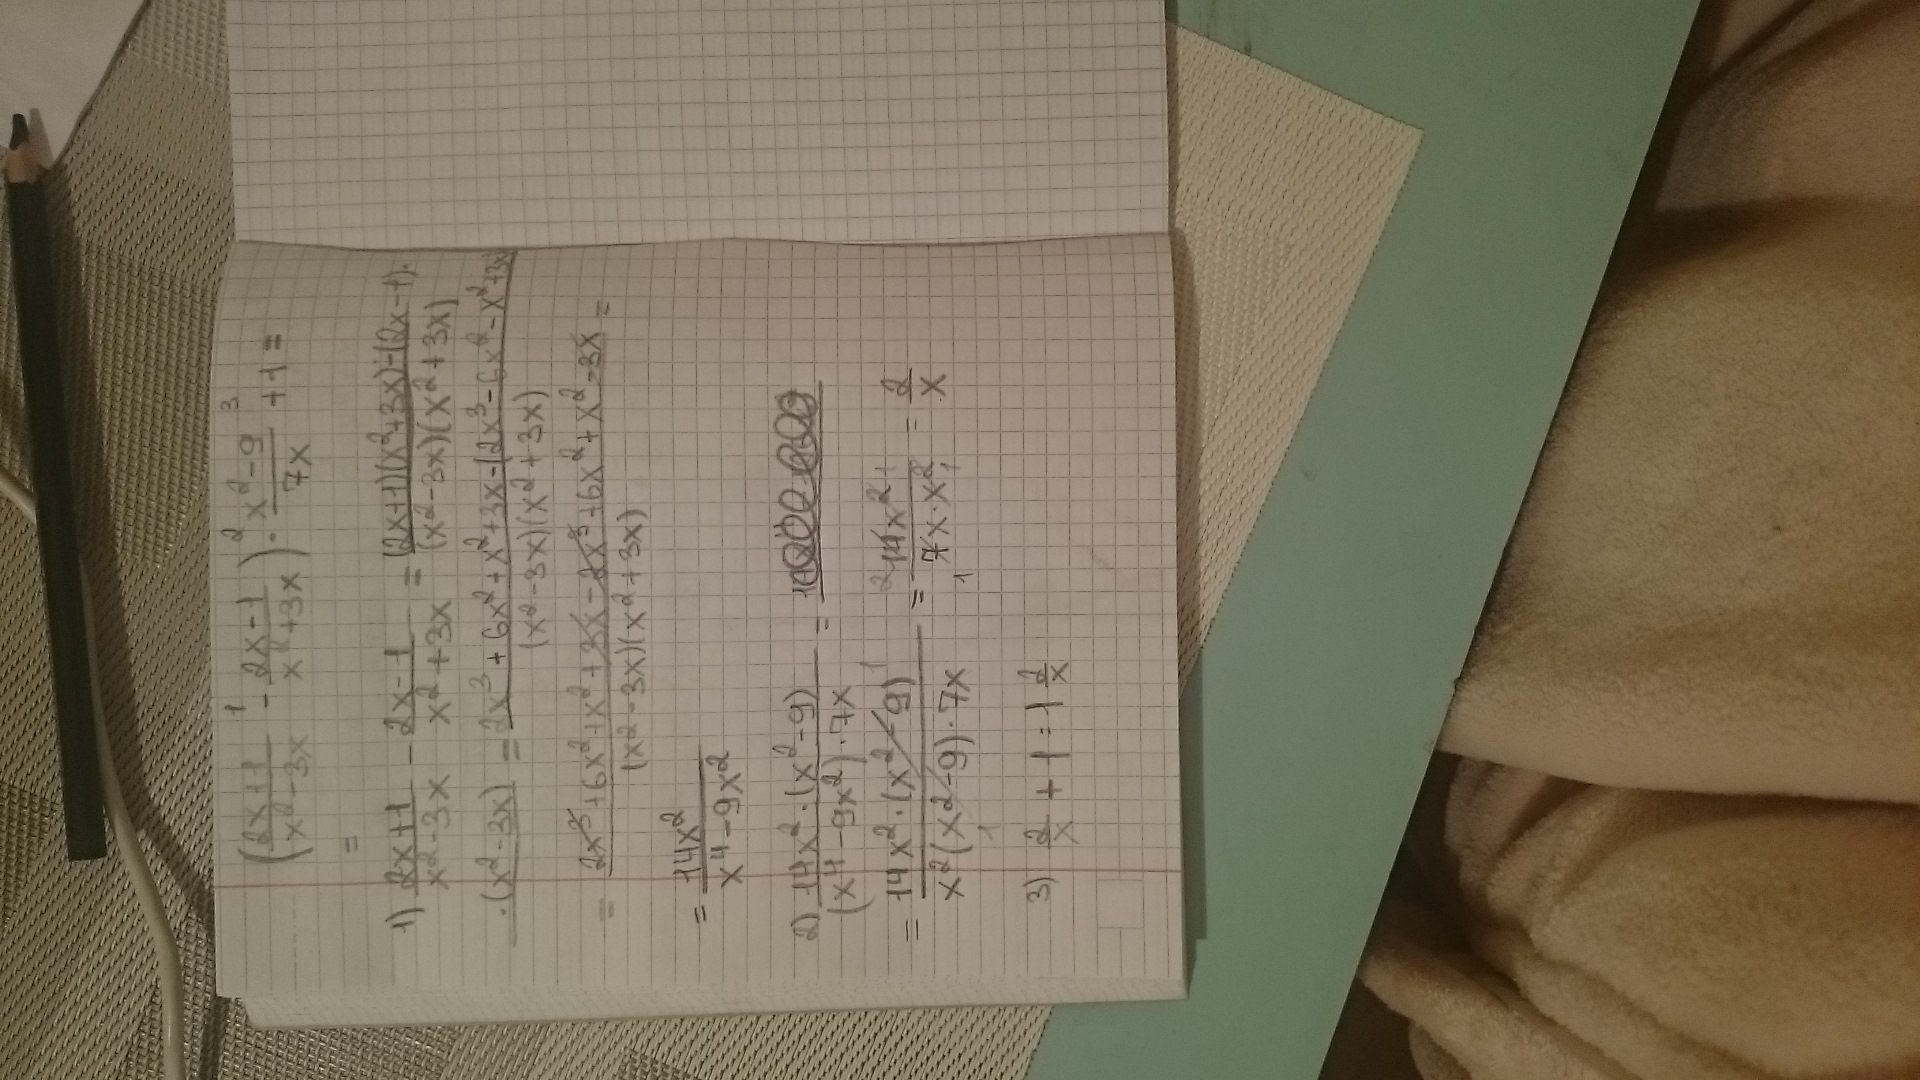 (2x+1/x²-3x ¹- 2x-1/x²+3x)²· x²-9/7x ³+1=
=
1) 2x+1/x²-3x - 2x-1/x²+3x = (2x+1)(x²+3x)-(2x-1)·/(x²-3x)(x²+3x)
·(x²-3x) = 2x³+6x²+x²+3x-(2x³-6x²-x²+3x)/(x²-3x)(x²+3x)
= 2x³+6x²+x²+3x-2x³+6x²+x²-3x/(x²-3x)(x²+3x) =
= 14x²/x⁴-9x²
2) 14x²·(x²-9)/(x⁴-9x²)·7x =
= 14x²·(x²-9)¹/x²(x²-9)·7x ₁ = ²14x²¹/₁7x·x²₁ = 2/x
3) 2/x + 1 = 1 2/x